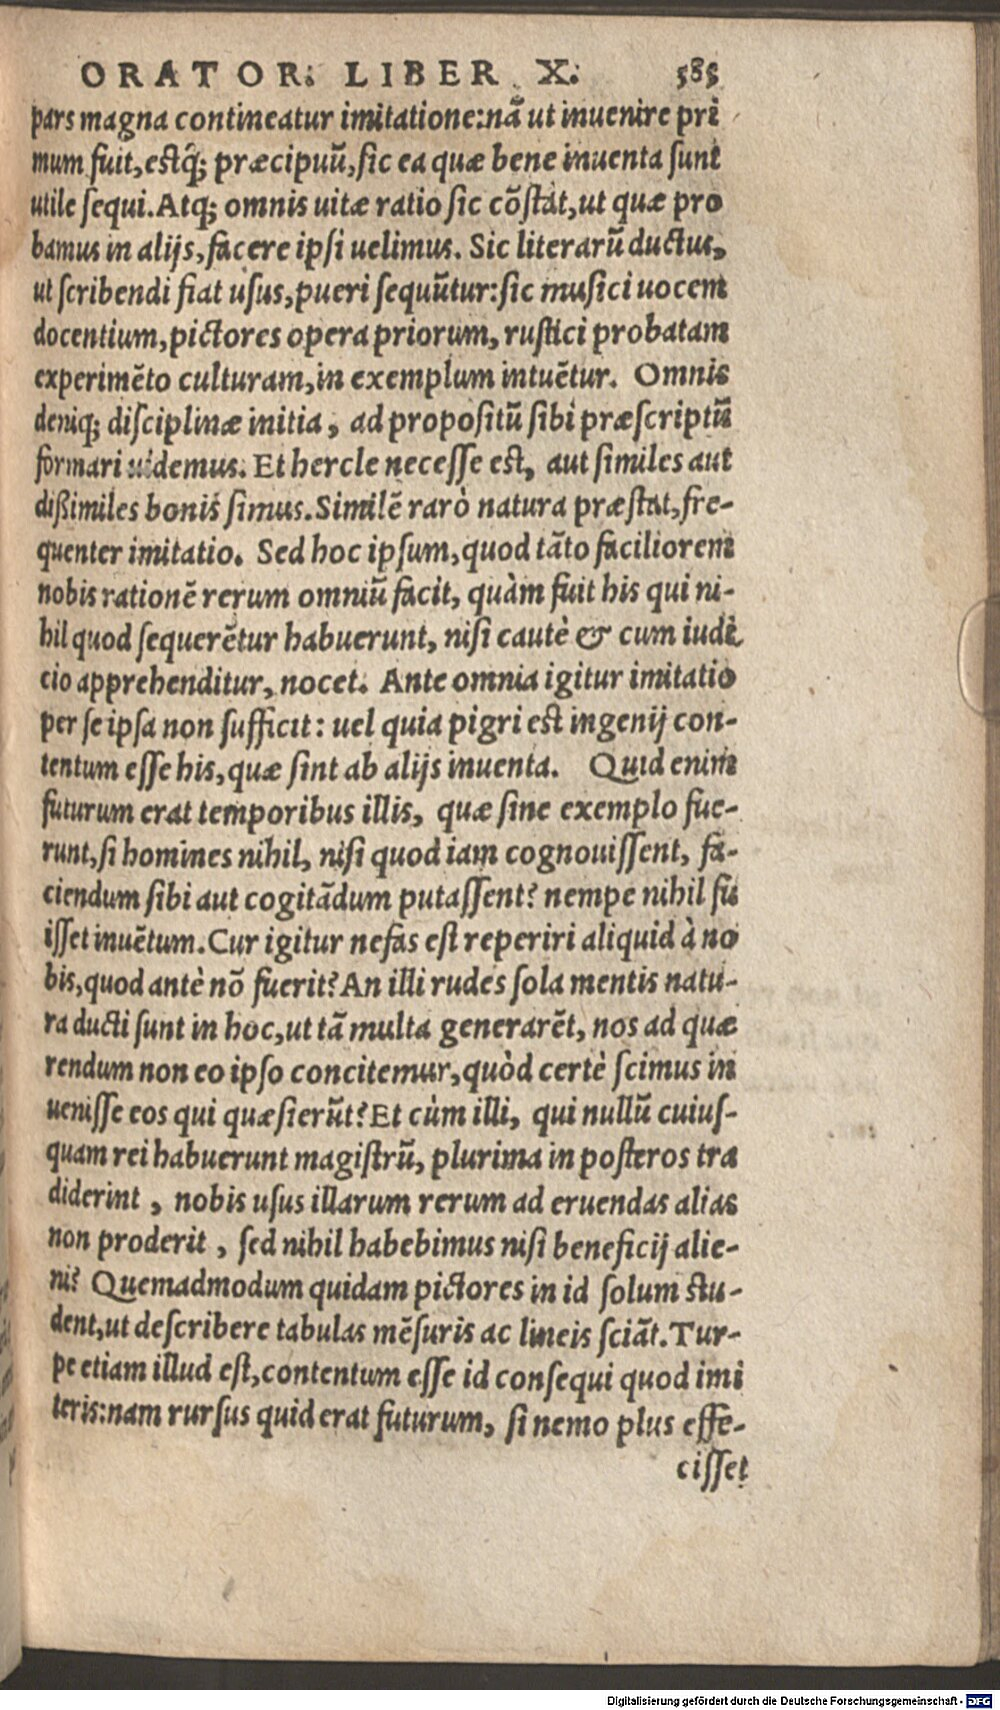 ORATOR. LIBER X. 585
pars magna contineatur imitatione:nã ut inuenire pri
mum fuit,estq́; præcipuũ,sic ea quæ bene inuenta sunt
utile sequi.Atq; omnis uitæ ratio sic cõstat,ut quæ pro
bamus in alijs,facere ipsi uelimus. Sic literarũ ductus,
ut scribendi fiat usus,pueri sequũtur:sic musici uocem
docentium,pictores opera priorum, rustici probatam
experimẽto culturam,in exemplum intuẽtur. Omnis
deniq; disciplinæ initia, ad propositũ sibi præscriptũ
formari uidemus. Et hercle necesse est, aut similes aut
dißimiles bonis simus.Similẽ rarò natura præstat,fre-
quenter imitatio. Sed hoc ipsum,quod tãto faciliorem
nobis rationẽ rerum omniũ facit, quàm fuit his qui ni-
hil quod sequerẽtur habuerunt, nisi cautè & cum iudi
cio apprehenditur, nocet. Ante omnia igitur imitatio
per se ipsa non sufficit: uel quia pigri est ingenij con-
tentum esse his,quæ sint ab alijs inuenta. Quid enim
futurum erat temporibus illis, quæ sine exemplo fue-
runt,si homines nihil, nisi quod iam cognouissent, fa-
ciendum sibi aut cogitãdum putassent? nempe nihil fu
isset inuẽtum.Cur igitur nefas est reperiri aliquid à no
bis,quod antè nõ fuerit?An illi rudes sola mentis natu-
ra ducti sunt in hoc,ut tã multa generarẽt, nos ad quæ
rendum non eo ipso concitemur,quòd certè scimus in
uenisse eos qui quæsierũt?Et cùm illi, qui nullũ cuius-
quam rei habuerunt magistrũ, plurima in posteros tra
diderint, nobis usus illarum rerum ad eruendas alias
non proderit, sed nihil habebimus nisi beneficij alie-
ni? Quemadmodum quidam pictores in id solum stu-
dent,ut describere tabulas mẽsuris ac lineis sciãt.Tur-
pe etiam illud est,contentum esse id consequi quod imi
teris:nam rursus quid erat futurum, si nemo plus effe-
cisset
Digitalisierung gefördert durch die Deutsche Forschungsgemeinschaft - DFG